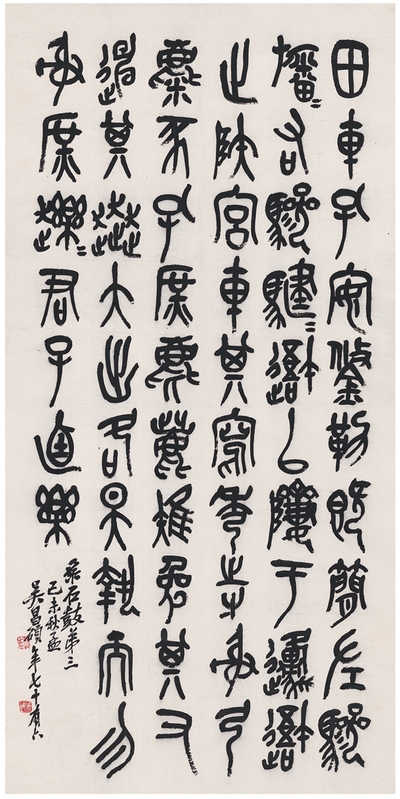 田車孔安鋚勒既簡左驂
旛=右驂騝=䢒以隮于邍䢒
止陕宮車其寫秀寺射弓
麋豕孔庶麀鹿雉兔其又
其奔大出各昊執而勿
射庶趯=君子逌樂
石鼓第三
己未秋孟
吳昌碩年七十有六